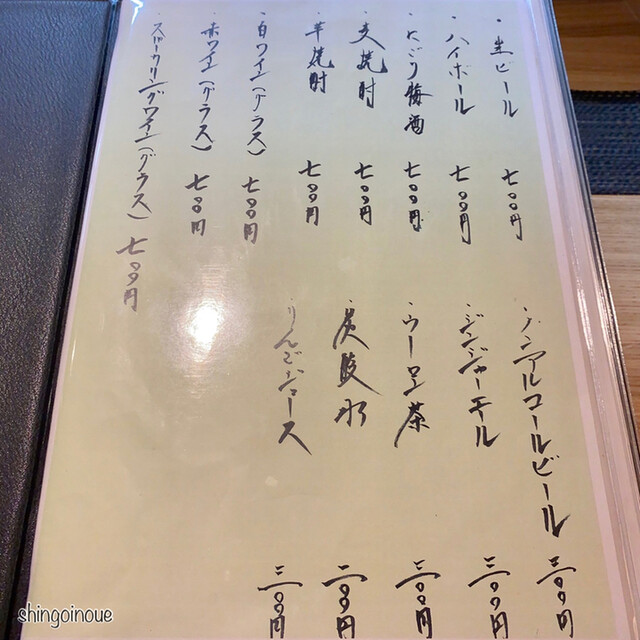 ・生ビール 七〇〇円
・ハイボール 七〇〇円
・にごり梅酒 七〇〇円
・麦焼酎 七〇〇円
・芋焼酎 七〇〇円
・白ワイン（グラス） 七〇〇円
・赤ワイン（グラス） 七〇〇円
・スパークリングワイン（グラス） 七〇〇円
・ノンアルコールビール 三〇〇円
・ジンジャーエール 三〇〇円
・ウーロン茶 三〇〇円
・炭酸水 二〇〇円
・りんごジュース 三〇〇円
shingoinoue